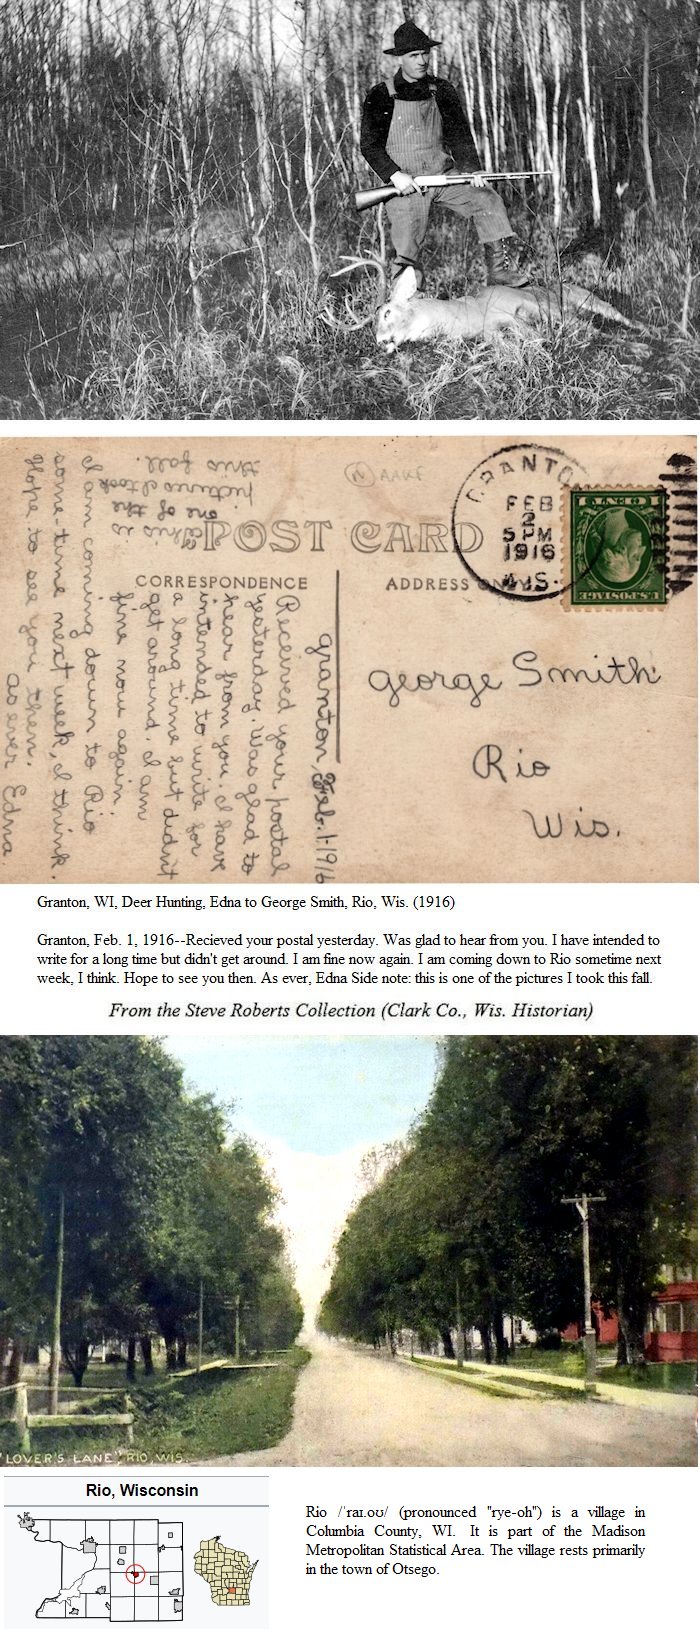 GRANTON
FEB
2
5 PM
1916
WIS.
U.S. POSTAGE
1 CENT 1
N AAKE
POST CARD
CORRESPONDENCE
ADDRESS ONLY
This is
one of the
pictures I took
this fall.
Granton, Feb. 1-1916
Received your postal
yesterday. Was glad to
hear from you. I have
intended to write for
a long time but didn't
get around. I am
fine now again
I am coming down to Rio
some-time next week, I think.
Hope to see you then.
As ever Edna.
George Smith
Rio
Wis.
Granton, WI, Deer Hunting, Edna to George Smith, Rio, Wis. (1916)
Granton, Feb. 1, 1916--Recieved your postal yesterday. Was glad to hear from you. I have intended to
write for a long time but didn't get around. I am fine now again. I am coming down to Rio sometime next
week, I think. Hope to see you then. As ever, Edna Side note: this is one of the pictures I took this fall.
From the Steve Roberts Collection (Clark Co., Wis. Historian)
"LOVER'S LANE", RIO, WIS.
Rio, Wisconsin
Rio /ˈraɪ.oʊ/ (pronounced "rye-oh") is a village in
Columbia County, WI. It is part of the Madison
Metropolitan Statistical Area. The village rests primarily
in the town of Otsego.